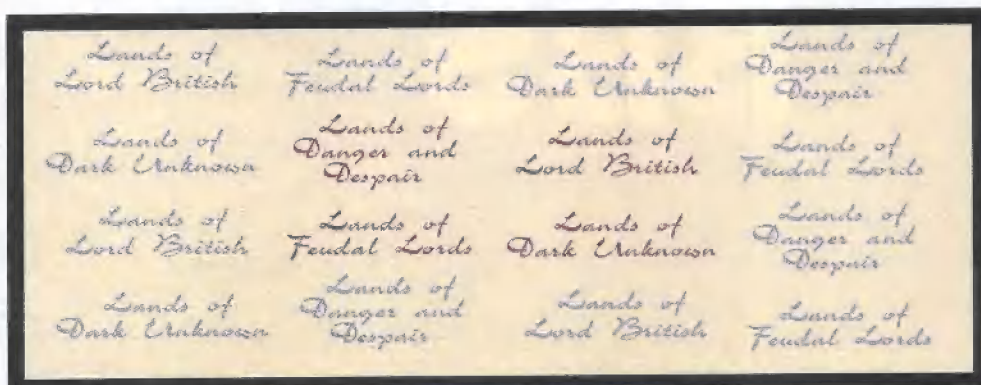 Lands of
Lord British
Lands of
Feudal Lords
Lands of
Dark Unknown
Lands of
Danger and
Despair
Lands of
Dark Unknown
Lands of
Danger and
Despair
Lands of
Lord British
Lands of
Feudal Lords
Lands of
Lord British
Lands of
Feudal Lords
Lands of
Dark Unknown
Lands of
Danger and
Despair
Lands of
Dark Unknown
Lands of
Danger and
Despair
Lands of
Lord British
Lands of
Feudal Lords